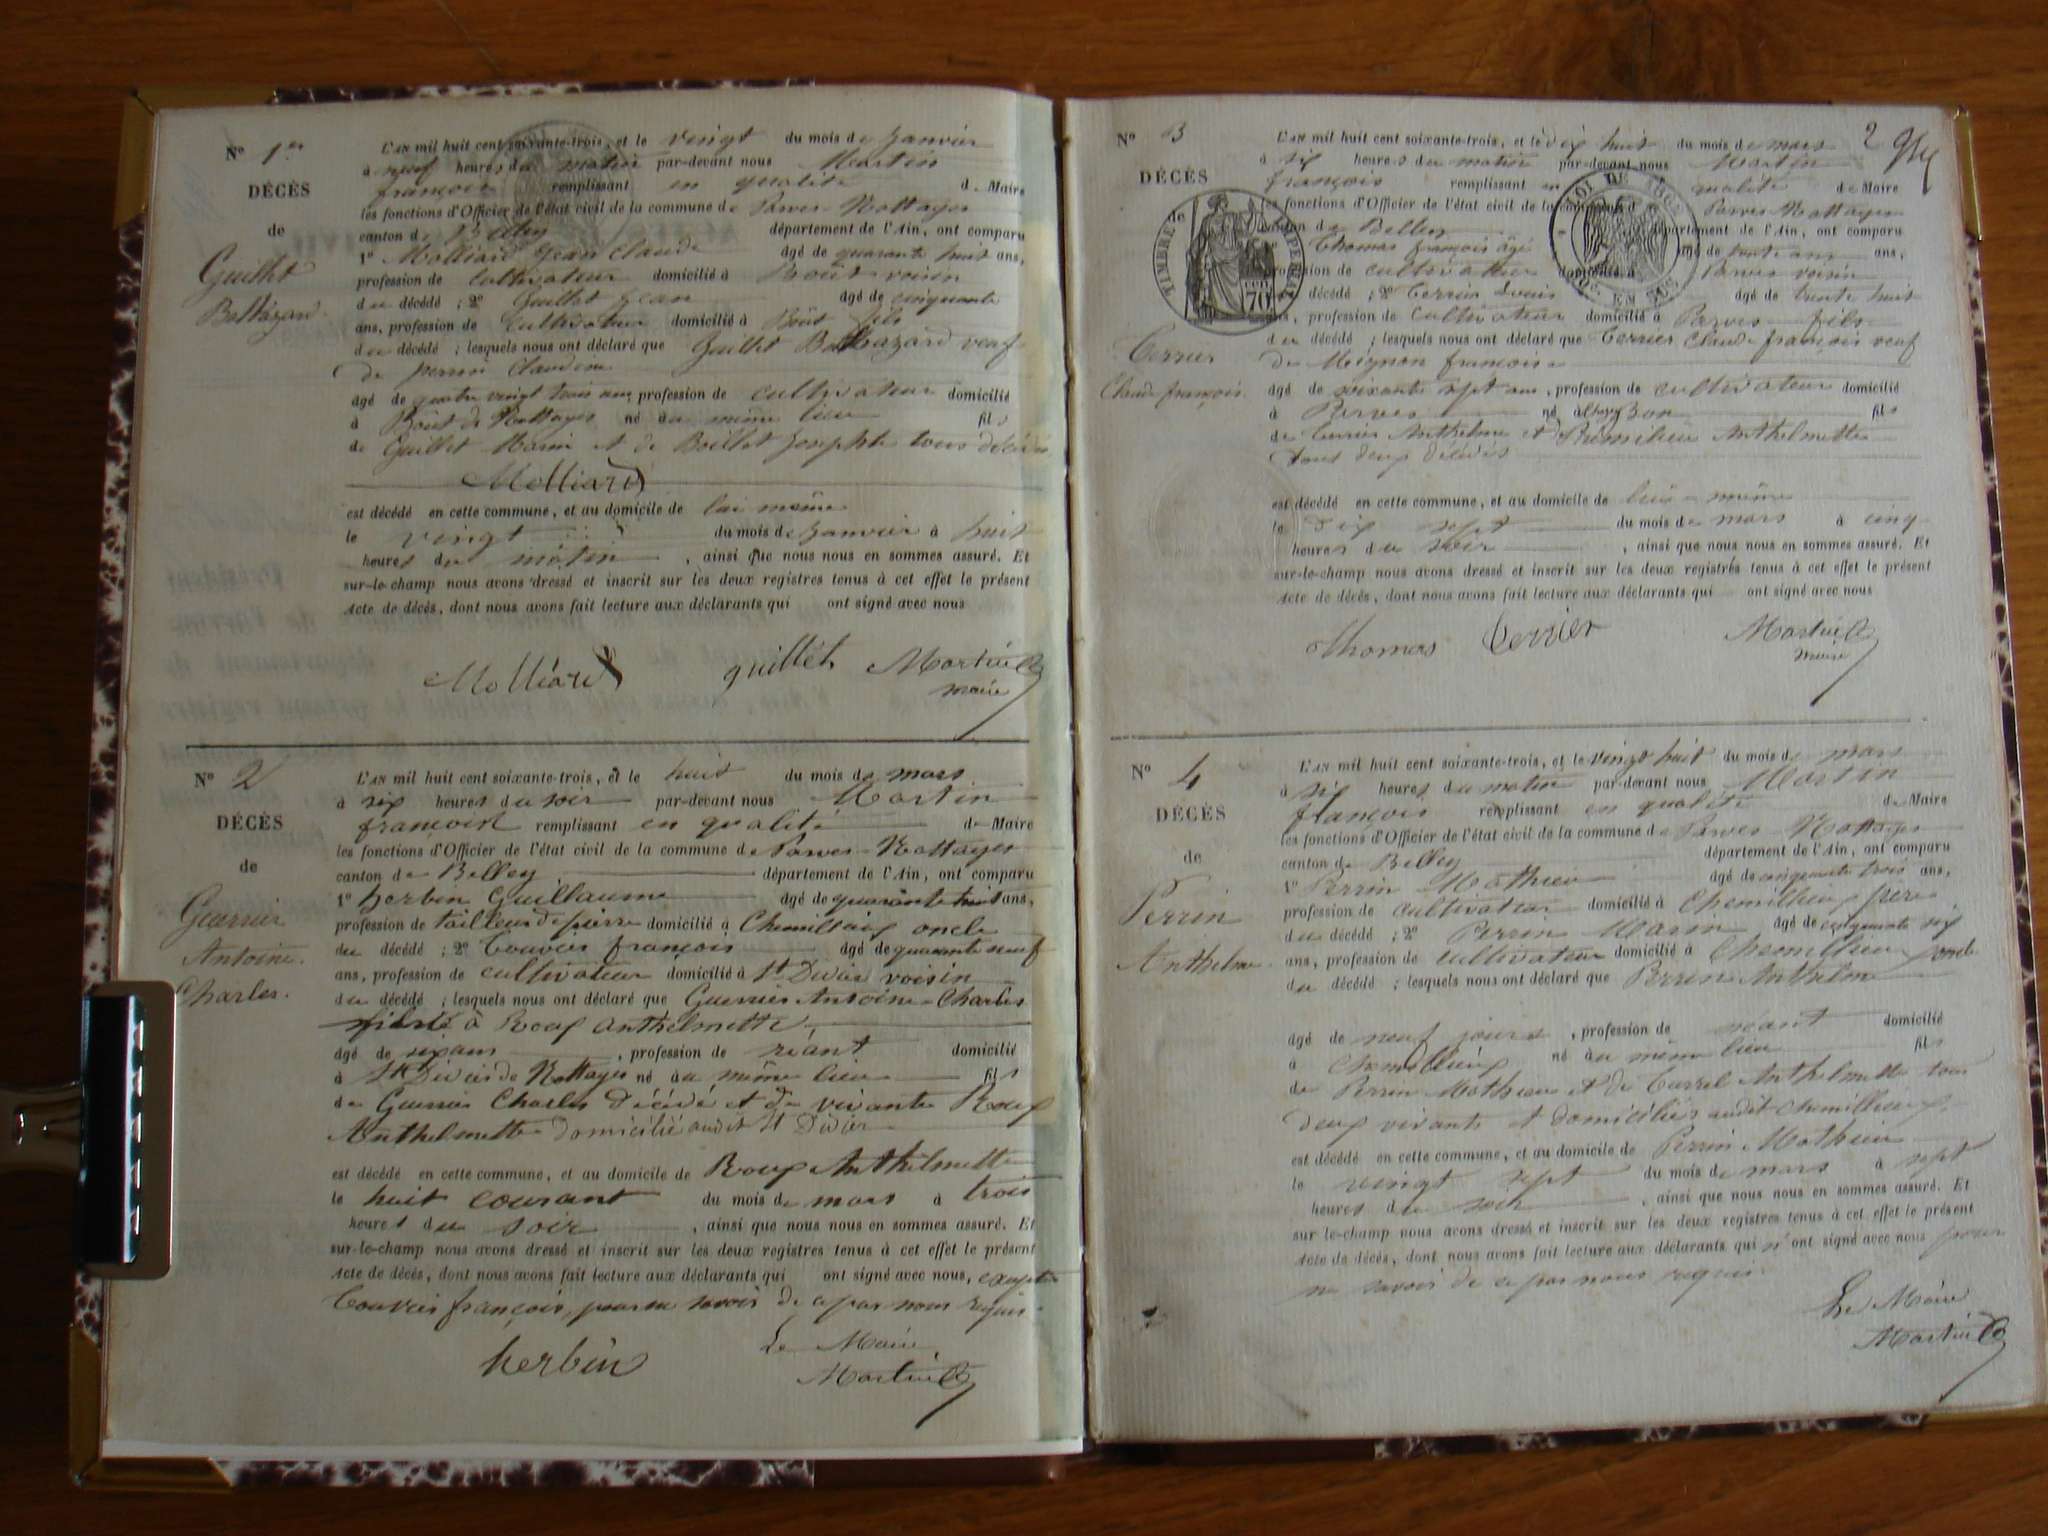 N° 1er
DÉCÈS
de
Guillet
Baltazard.
L'AN mil huit cent soixante-trois, et le vingt du mois de Janvier
à neuf heures du matin par-devant nous Martin
françois remplissant en qualité de Maire
les fonctions d'Officier de l'état civil de la commune de Parves-Nattages
canton de Belley département de l'Ain, ont comparu
1° Molliard Jean Claude âgé de quarante huit ans,
profession de Cultivateur domicilié à voisin
du décédé ; 2° Guillet Jean âgé de cinquante
ans, profession de Cultivateur domicilié à fils
du décédé ; lesquels nous ont déclaré que Guillet Balthazard veuf
de perrin Claudine
âgé de quatre vingt trois ans, profession de cultivateur domicilié
à de Nattages né au même lieu fils
de Guillet Marin et de Josephte tous décédés
Molliard
est décédé en cette commune, et au domicile de lui même
le vingt du mois de Janvier à huit
heures du matin , ainsi que nous nous en sommes assuré. Et
sur-le-champ nous avons dressé et inscrit sur les deux registres tenus à cet effet le présent
Acte de décès, dont nous avons fait lecture aux déclarants qui ont signé avec nous
Molliard guillet Martin
maire
N° 2
DÉCÈS
de
Guerrier
Antoine.
Charles.
L'AN mil huit cent soixante-trois, et le huit du mois de mars
à six heures du soir par-devant nous Martin
françois remplissant en qualité de Maire
les fonctions d'Officier de l'état civil de la commune de Parves-Nattages
canton de Belley département de l'Ain, ont comparu
1° herbin Guillaume âgé de quarante huit ans,
profession de tailleur de pierre domicilié à oncle
du décédé ; 2° françois âgé de quarante neuf
ans, profession de cultivateur domicilié à St Didier voisin
du décédé ; lesquels nous ont déclaré que Guerrier Antoine-Charles
à Roux Anthelmette,
âgé de six ans , profession de néant domicilié
à St Didier de Nattages né au même lieu fils
de Guerrier Charles décédé et de vivante Roux
Anthelmette domicilié audit St Didier
est décédé en cette commune, et au domicile de Roux Anthelmette
le huit courant du mois de mars à trois
heures du soir , ainsi que nous nous en sommes assuré. Et
sur-le-champ nous avons dressé et inscrit sur les deux registres tenus à cet effet le présent
Acte de décès, dont nous avons fait lecture aux déclarants qui ont signé avec nous, excepté
françois, pour ne savoir de ce par nous requis.
herbin Le Maire
Martin
N° 3
2
DÉCÈS
de
Terrier
Claude françois.
TIMBRE IMPERIAL
70
LOI DE
EN SUS
L'AN mil huit cent soixante-trois, et le dix huit du mois de mars
à six heures du matin par-devant nous Martin
françois remplissant en qualité de Maire
les fonctions d'Officier de l'état civil de la commune de Parves-Nattages
canton de Belley département de l'Ain, ont comparu
1° Thomas françois âgé âgé de trente ans,
profession de cultivateur domicilié à Parves voisin
du décédé ; 2° Terrier Louis âgé de trente huit
ans, profession de Cultivateur domicilié à Parves fils
du décédé ; lesquels nous ont déclaré que Terrier Claude françois veuf
de Mignon françoise
âgé de soixante sept ans, profession de cultivateur domicilié
à Parves né à fils
de Terrier Anthelme et de Anthelmette
tous deux décédés
est décédé en cette commune, et au domicile de lui-même
le dix sept du mois de mars à cinq
heures du soir , ainsi que nous nous en sommes assuré. Et
sur-le-champ nous avons dressé et inscrit sur les deux registres tenus à cet effet le présent
Acte de décès, dont nous avons fait lecture aux déclarants qui ont signé avec nous
Thomas Terrier Martin
maire
N° 4
DÉCÈS
de
Perrin
Anthelme.
L'AN mil huit cent soixante-trois, et le vingt huit du mois de mars
à six heures du matin par-devant nous Martin
françois remplissant en qualité de Maire
les fonctions d'Officier de l'état civil de la commune de Parves-Nattages
canton de Belley département de l'Ain, ont comparu
1° Perrin Mathieu âgé de cinquante trois ans,
profession de cultivateur domicilié à Chemillieux père
du décédé ; 2° Perrin Marin âgé de cinquante six
ans, profession de cultivateur domicilié à Chemillieux oncle
du décédé ; lesquels nous ont déclaré que Perrin Anthelme
âgé de neuf jours , profession de néant domicilié
à Chemillieux né au même lieu fils
de Perrin Mathieu et de Anthelmette tous
deux vivants et domiciliés audit Chemillieux.
est décédé en cette commune, et au domicile de Perrin Mathieu
le vingt sept du mois de mars à sept
heures du soir , ainsi que nous nous en sommes assuré. Et
sur-le-champ nous avons dressé et inscrit sur les deux registres tenus à cet effet le présent
Acte de décès, dont nous avons fait lecture aux déclarants qui n'ont signé avec nous pour
ne savoir de ce par nous requis.
Le Maire
Martin